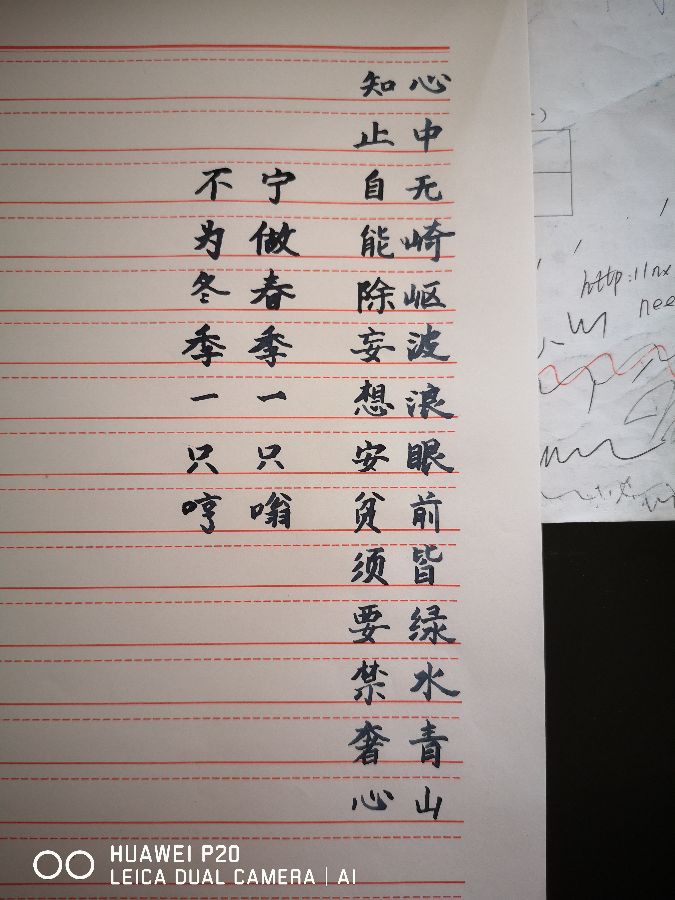 心中无崎岖波浪眼前皆绿水青山
知止自能除妄想安贫须要禁奢心
宁做春季一只嗡
不为冬季一只哼
http://nx
nee
HUAWEI P20
LEICA DUAL CAMERA | AI